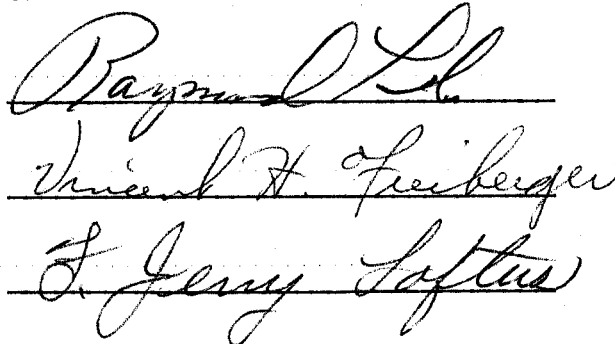 Raymond
Vincent H. Freiberger
F. Jerry Loftus